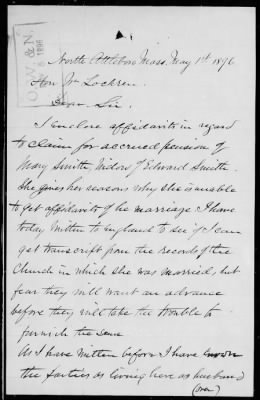 O. W. & N.
1896
North Attleboro Mass. May 1st 1896
Hon Wm Lochren
Dear Sir
I enclose affidavits in regard
to claim for accrued pension of
Mary Smith, Widow of Edward Smith.
She gives her reasons why she is unable
to get affidavits of her marriage. I have
today written to England to see if I can
get transcript from the records of the
Church in which she was married, but
fear they will want an advance
before they will take the trouble to
furnish the same
As I have written before I have known
the parties as living here as husband
(over)